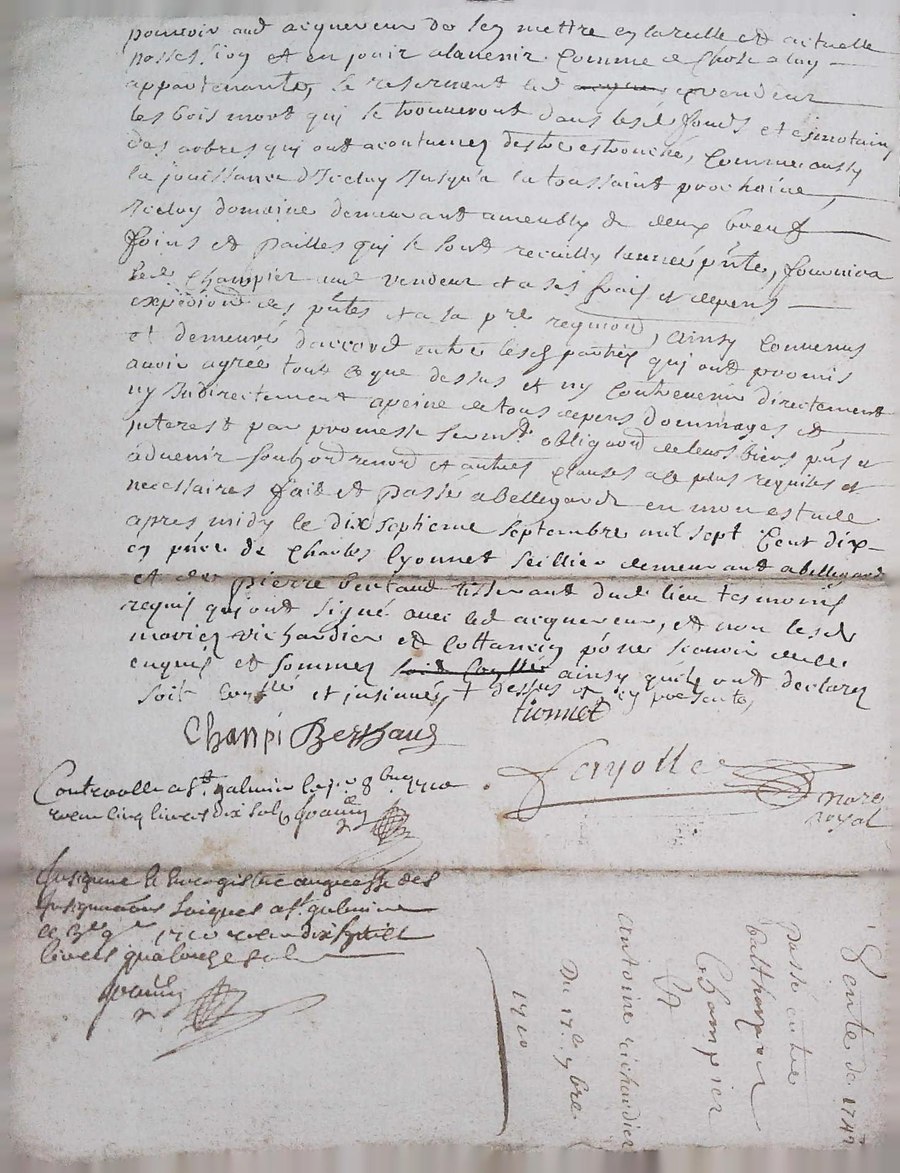 pouvoir aud acquereur de sen mettre en la reelle et actuelle
possession et en jouir alavenir Comme de Chose aluy
appartenante, se reservent led vendeur
les bois mort qui se trouveront dans lesd fonds et
des arbres qui ont acoutumez destre estronché, Comme aussy
la jouissance d'Iceluy Jusqu'a la toussaint prochaine,
Iceluy domaine demeurant ameublé de deux boeuf
foins et pailles qui se sont recueilly lannée pnte, fournira
led Champier aud vendeur et a ses frais et depens
expédiond des pntes et a sa pre requiond, ainsy Convenus
et demeuré daccord entre lesd parties qui ont promis
avoir agree tout ce que dessus et ny Contrevenir directement
ny Indirectement apeine de tous depens dommages et
interest par promesse sermt obligaond de leurs biens pnts et
advenir et autres Clauses a ce plus requises et
necessaires fait et passé a bellegarde en mon estude
apres midy le dix septieme septembre mil sept Cent dix
en pnce de Charles Lyonnet seillier demeurant a bellegarde
et de pierre bertaud tisserant dud lieu tesmoins
requis qui ont signé avec led acquereur, et non lesd
mariez richardier et Cottancin pour ne scavoir de ce
enquis et sommez soit Conttlé ainsy quils ont declarez
soit Conttlé et insinué, + dessus
Champi Berthaud tionnet
Fayolle
nore
royal
Controolle a st galmier le 8bre 1710
receu cinq livres dix sols
Insinué et Enregistré au greffe des
Insinuations Laiques a st galmier
le 1710 receu dix sept
livres quatorze sols
Vente de 1742
passé entre
balthazar
Champier
Et
antoine richardier
Du 17e 7bre
1710